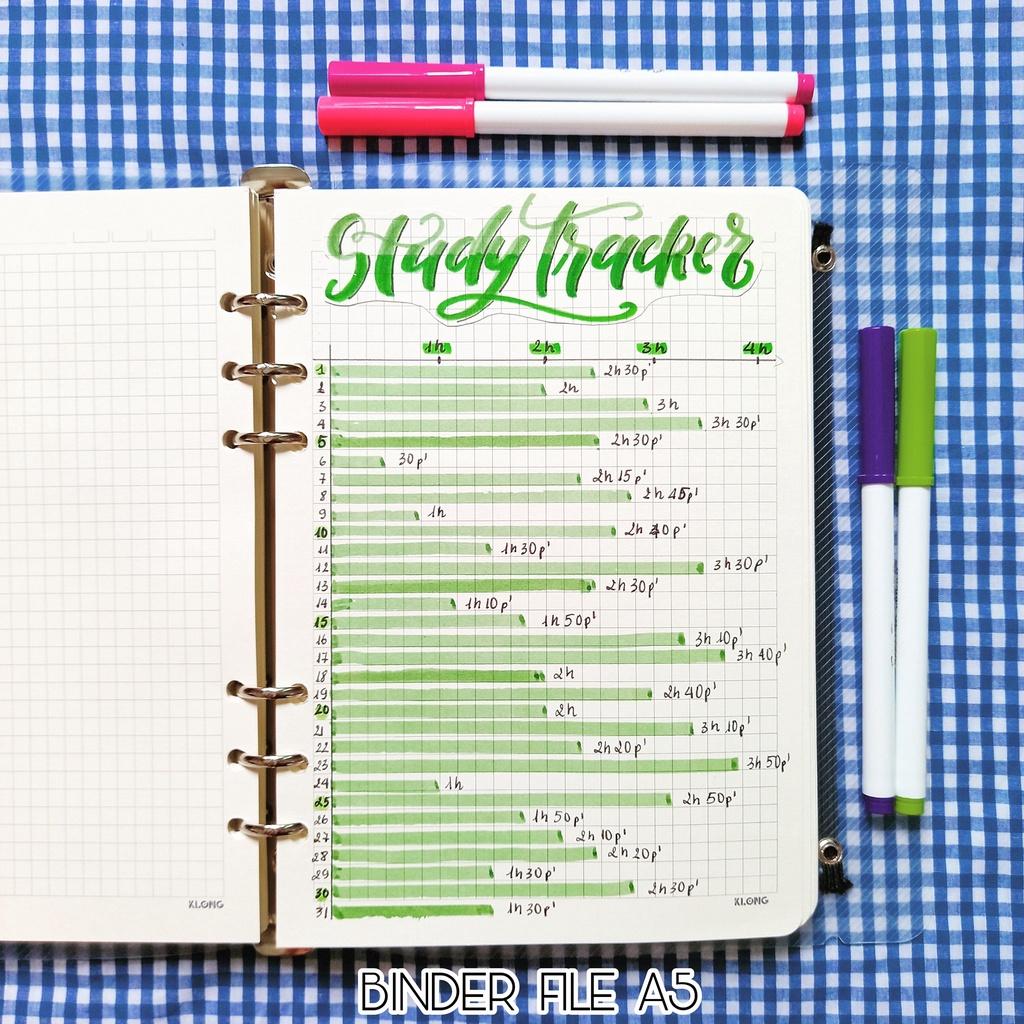 Study tracker
1h 2h 3h 4h
1 2h30p'
2 2h
3 3h
4 3h 30p'
5 2h30p'
6 30p'
7 2h 15p'
8 2h 45p'
9 1h
10 2h 40p'
11 1h30p'
12 3h30p'
13 2h 30p'
14 1h10p'
15 1h 50p'
16 3h 10p'
17 3h 40p'
18 2h
19 2h 40p'
20 2h
21 3h 10p'
22 2h20p'
23 3h 50p'
24 1h
25 2h 50p'
26 1h 50p'
27 2h 10p'
28 2h 20p'
29 1h30p'
30 2h30p'
31 1h 30p'
KLONG KLONG
BINDER FILE A5